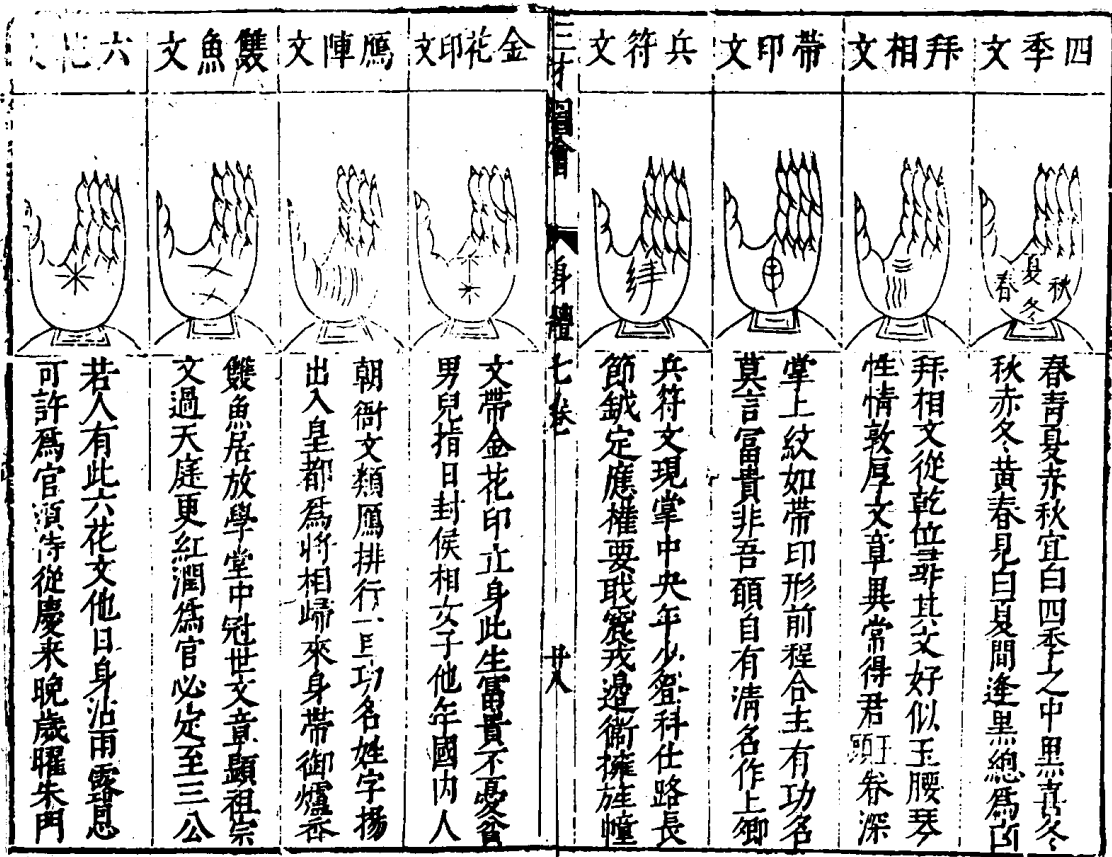 四季文
春青夏赤秋宜白四季之中黑喜冬
秋赤冬黃春見白夏間逢黑總爲凶
春
夏
秋
冬
拜相文
拜相文從乾位尋其文好似玉腰琴
性情敦厚文章異常得君王眷深
頭
帶印文
掌上紋如帶印形前程合主有功名
莫言富貴非吾願自有清名作上卿
兵符文
兵符文現掌中央年少登科仕路長
節鉞定應權要職 戎邊衛擁旌幢
三才圖會
身體七卷
廿八
金花印文
文帶金花印立身此生富貴不憂貧
男兒指日封侯相女子他年國內人
鴈陣文
朝衙文類鴈排行一旦功名姓字揚
出入皇都爲將相歸來身帶御爐香
雙魚文
雙魚居放學堂中冠世文章顯祖宗
文過天庭更紅潤爲官必定至三公
六花文
若人有此六花文他日身沾雨露恩
可許爲官須侍從慶來晚歲曜朱門